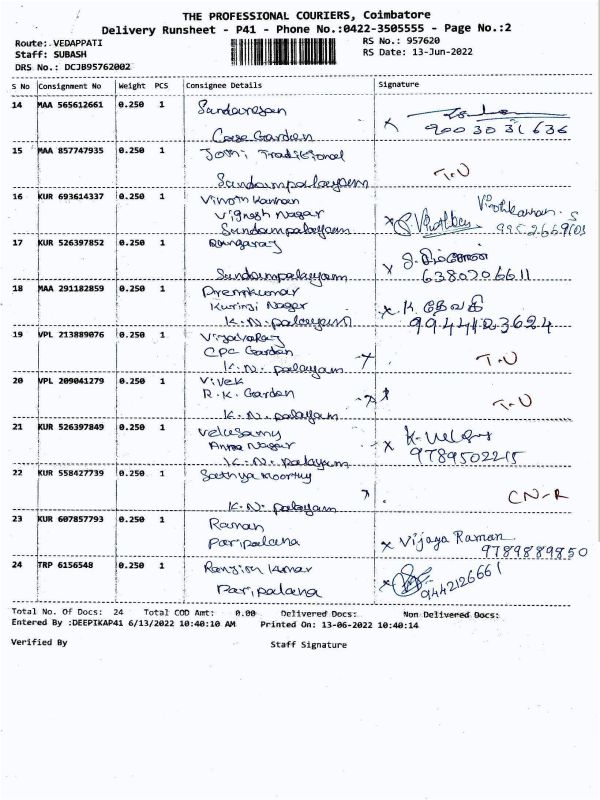 THE PROFESSIONAL COURIERS, Coimbatore
Delivery Runsheet - P41 - Phone No.:0422-3505555 - Page No.:2
Route: VEDAPPATI
RS No.: 957620
Staff: SUBASH
RS Date: 13-Jun-2022
DRS No.: DCJB95762002
S No Consignment No Weight PCS Consignee Details Signature
14 MAA 565612661 0.250 1 Sundaresan
Case Garden 9003031636
15 MAA 857747935 0.250 1 Jothi Traditional
Sundampalayam T.U
16 KUR 693614337 0.250 1 Vinoth Kannan Vinothkannan. S
Vignesh Nagar
Sundampalayam
17 KUR 526397852 0.250 1 Rangaraj
Sundampalayam 6380206611
18 MAA 291182859 0.250 1 Premkumar
Kurinji Nagar K. தேவகி
K.N. palayam 9944123624
19 VPL 213889076 0.250 1
CPC Garden T.U
K.N. palayam
20 VPL 209041279 0.250 1 Vivek
R.K. Garden T.U
K.N. palayam
21 KUR 526397849 0.250 1 Velusamy
Anna Nagar
K.N. palayam 9789502215
22 KUR 558427739 0.250 1 Sathya Moorthy
K.N. palayam CN-R
23 KUR 607857793 0.250 1 Raman
Paripalana x Vijaya Raman
9789889850
24 TRP 6156548 0.250 1 Ranjith Kumar
Paripalana 9442126661
Total No. Of Docs: 24 Total COD Amt: 0.00 Delivered Docs: Non Delivered Docs:
Entered By :DEEPIKAP41 6/13/2022 10:40:10 AM Printed On: 13-06-2022 10:40:14
Verified By Staff Signature